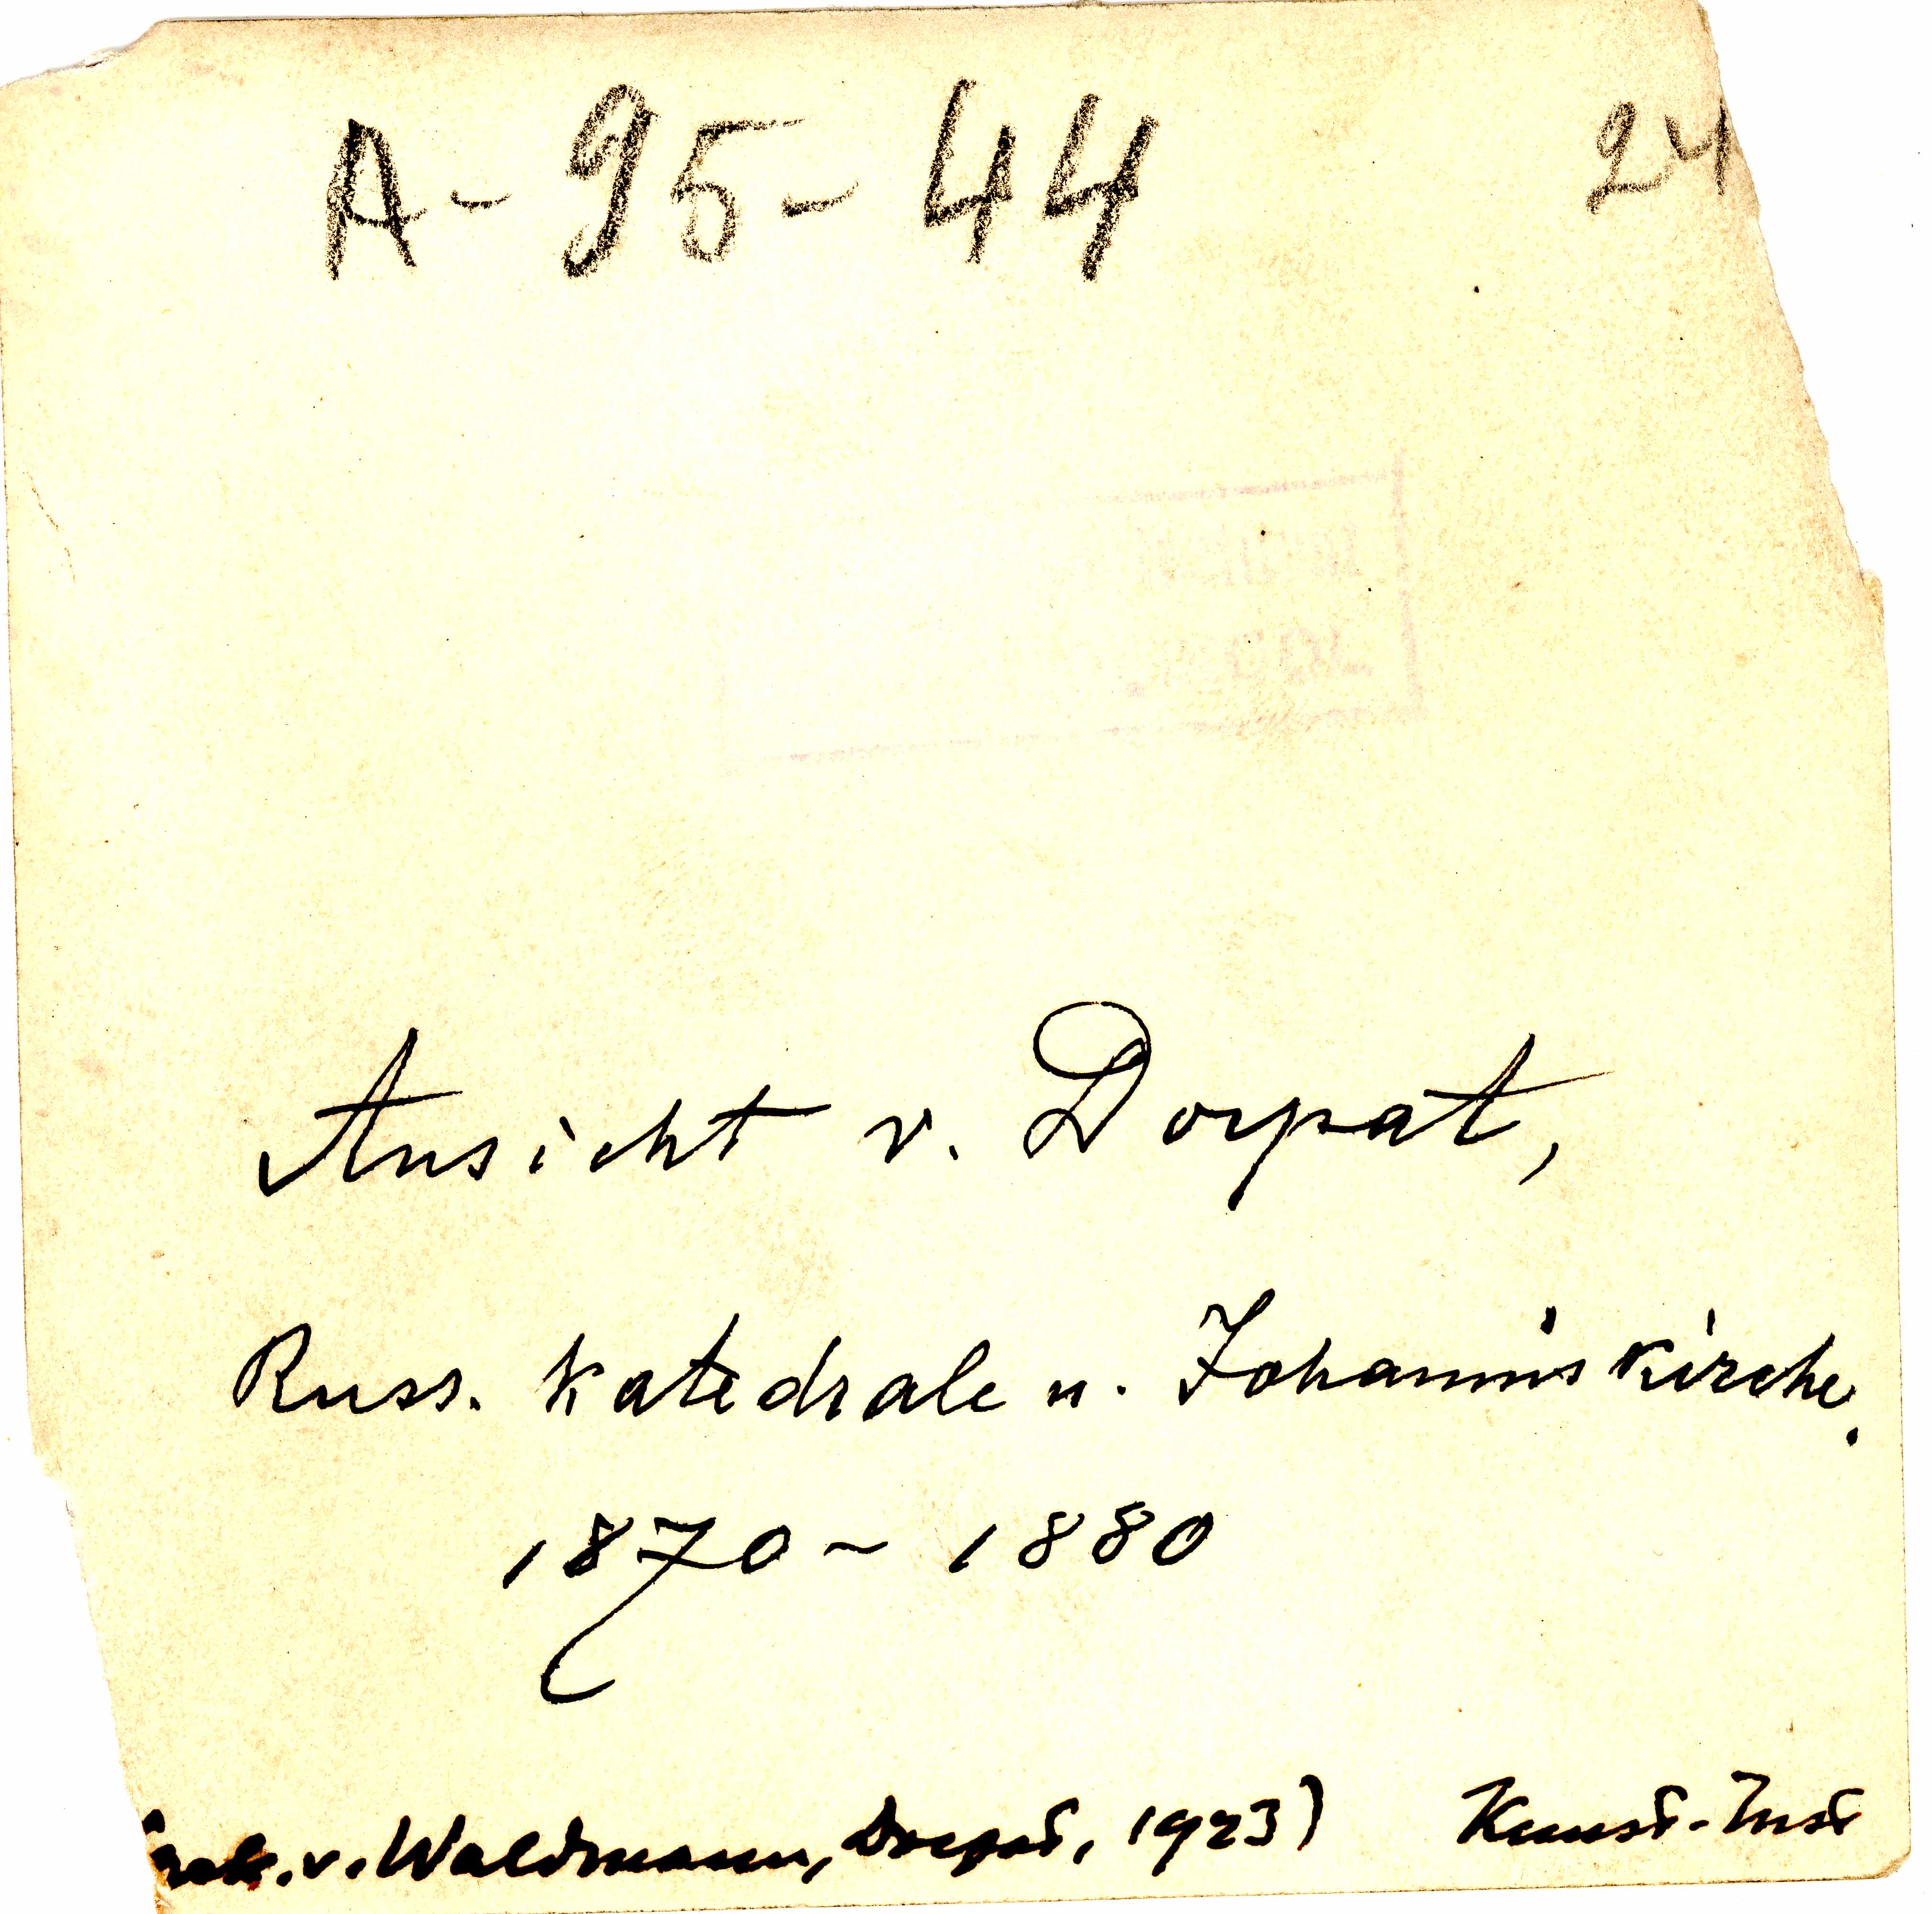 A-95-44 24
Ansicht v. Dorpat,
Russ. Katedrale u. Johanniskirche.
1870-1880
v. Waldmann, Dorpat, 1923) Kunst-Inst